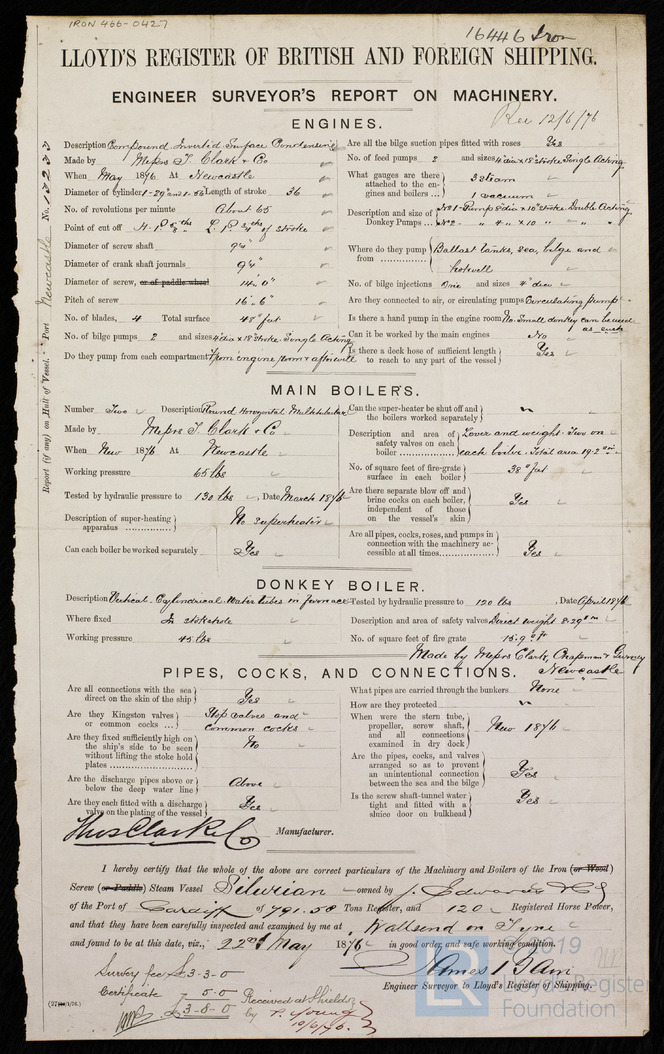 IRON 466-0427
16446 Iron
LLOYD'S REGISTER OF BRITISH AND FOREIGN SHIPPING.
ENGINEER SURVEYOR'S REPORT ON MACHINERY.
Rec 12/6/76
No. 13233 Port Newcastle
Report (if any) on Hull of Vessel.
ENGINES.
Description Compound Inverted Surface Condensing
Made by Messrs T. Clark & Co
When May 1876 At Newcastle
Diameter of cylinder 1-29" and 1-56" Length of stroke 36
No. of revolutions per minute About 65
Point of cut off H.P. 5/8ths L.P. 3/4ths of stroke
Diameter of screw shaft 9¼"
Diameter of crank shaft journals 9¼"
Diameter of screw, or of paddle wheel 14.0"
Pitch of screw 16.6"
No. of blades, 4 Total surface 48 □ feet
No. of bilge pumps 2 and sizes 4" dia x 18" stroke Single Acting
Do they pump from each compartment From engine room & afterwell
Are all the bilge suction pipes fitted with roses Yes
No. of feed pumps 2 and sizes 4" dia x 18" stroke Single Acting
What gauges are there attached to the engines and boilers ... 3 steam
1 vacuum
Description and size of Donkey Pumps ... No 1. Pump 8 dia x 10" stroke Double Acting
No 2. " 4 " x 10 " " "
Where do they pump from Ballast tanks, sea, bilge and
hotwell
No. of bilge injections One and sizes 4" dia
Are they connected to air, or circulating pumps Circulating pump
Is there a hand pump in the engine room No. Small donkey can be used
as such
Can it be worked by the main engines No
Is there a deck hose of sufficient length to reach to any part of the vessel Yes
MAIN BOILERS.
Number Two Description Round Horizontal Multitubular
Made by Messrs T. Clark & Co
When New 1876 At Newcastle
Working pressure 65 lbs
Tested by hydraulic pressure to 130 lbs, Date March 1876
Description of super-heating apparatus No superheater
Can each boiler be worked separately Yes
Can the super-heater be shut off and the boilers worked separately
Description and area of safety valves on each boiler Lever and weight. Two on
each boiler. Total area 19.2 □"
No. of square feet of fire-grate surface in each boiler 38 □ feet
Are there separate blow off and brine cocks on each boiler, independent of those on the vessel's skin Yes
Are all pipes, cocks, roses, and pumps in connection with the machinery accessible at all times Yes
DONKEY BOILER.
Description Vertical. Cylindrical. Water tubes in furnace
Where fixed In stokehole
Working pressure 45 lbs
Tested by hydraulic pressure to 120 lbs, Date April 1876
Description and area of safety valves Direct weight 8.29 □"
No. of square feet of fire grate 15.9 □ ft
Made by Messrs Clark, Chapman & Gurney
Newcastle
PIPES, COCKS, AND CONNECTIONS.
Are all connections with the sea direct on the skin of the ship Yes
Are they Kingston valves or common cocks ... Stop valves and
common cocks
Are they fixed sufficiently high on the ship's side to be seen without lifting the stoke hold plates No
Are the discharge pipes above or below the deep water line Above
Are they each fitted with a discharge valve on the plating of the vessel Yes
What pipes are carried through the bunkers None
How are they protected
When were the stern tube, propeller, screw shaft, and all connections examined in dry dock New 1876
Are the pipes, cocks, and valves arranged so as to prevent an unintentional connection between the sea and the bilge Yes
Is the screw shaft-tunnel water tight and fitted with a sluice door on bulkhead Yes
Thos Clark & Co Manufacturer.
I hereby certify that the whole of the above are correct particulars of the Machinery and Boilers of the Iron (or Wood)
Screw (or Paddle) Steam Vessel Silurian owned by J. Edwards & Co
of the Port of Cardiff of 791.58 Tons Register, and 120 Registered Horse Power,
and that they have carefully inspected and examined by me at Wallsend on Tyne
and found to be at this date, viz., 22nd May 1876 in good order and safe working condition.
Engineer Surveyor to Lloyd's Register of Shipping.
Survey fee £3-3-0
Certificate 5-0
£3-8-0
Received at Shields
by P. Young
10/6/76.
2019
LR
Lloyd's Register
Foundation